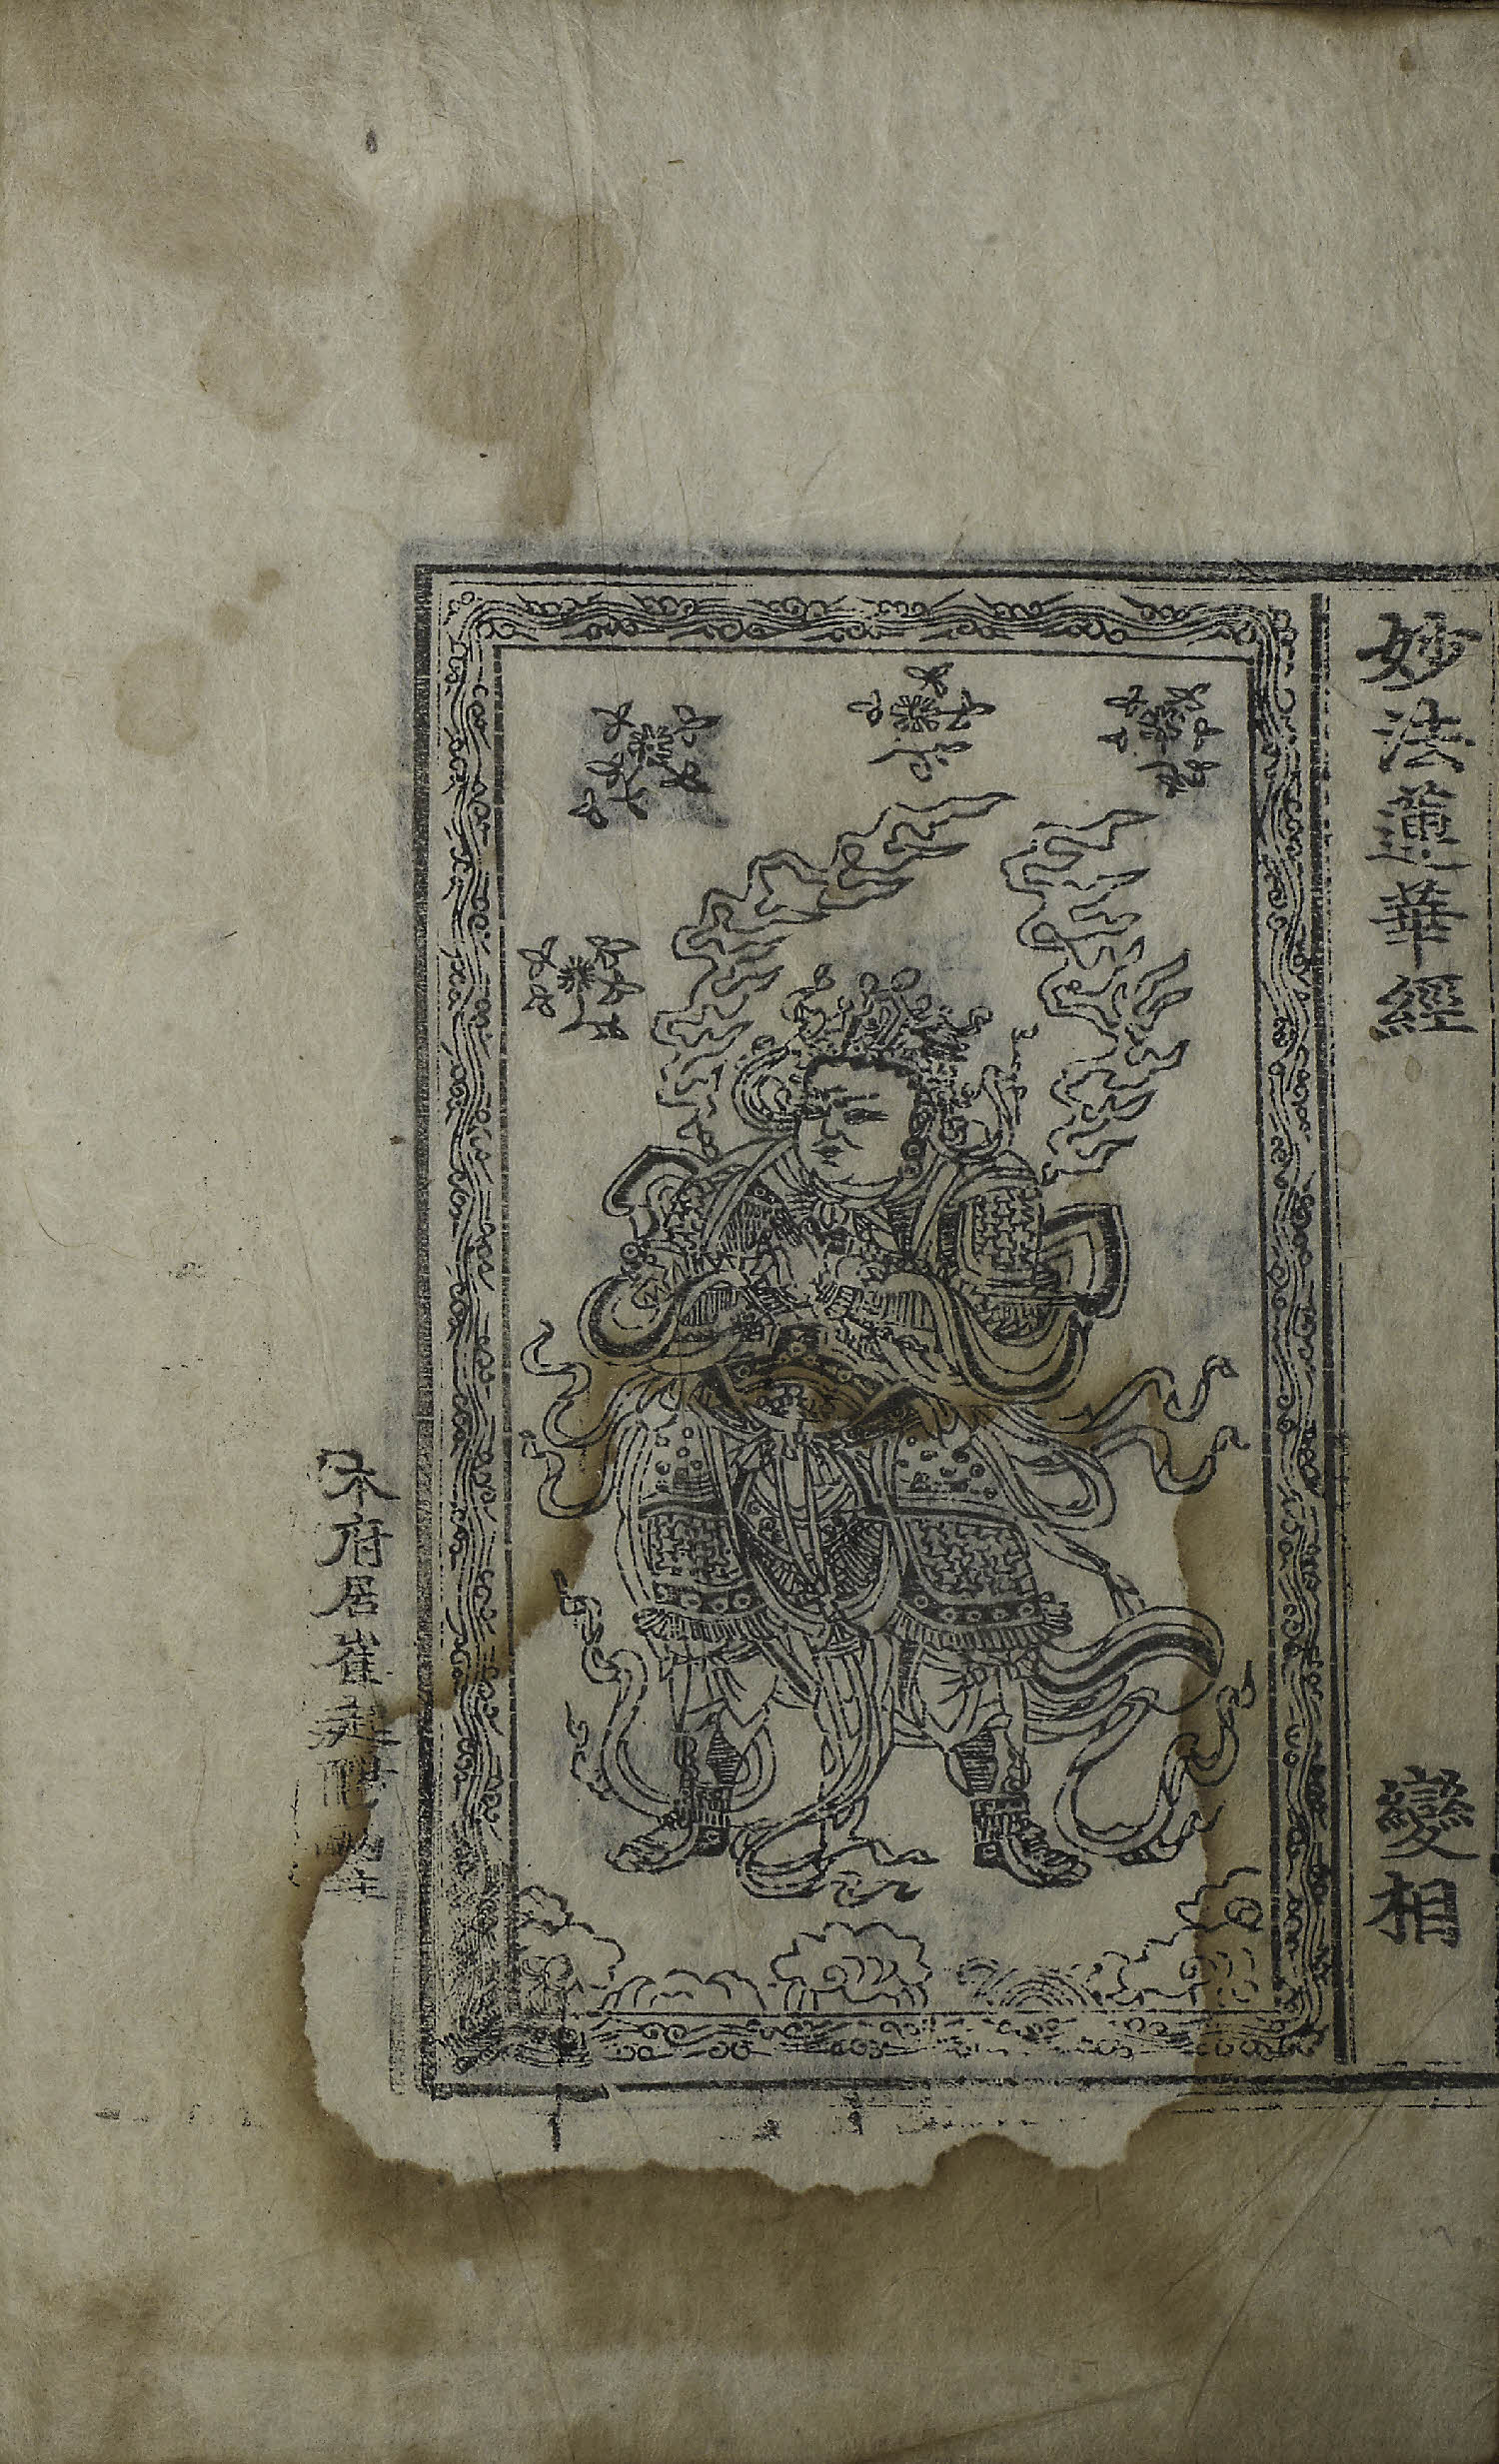 妙法蓮華經 變相
本府居崔